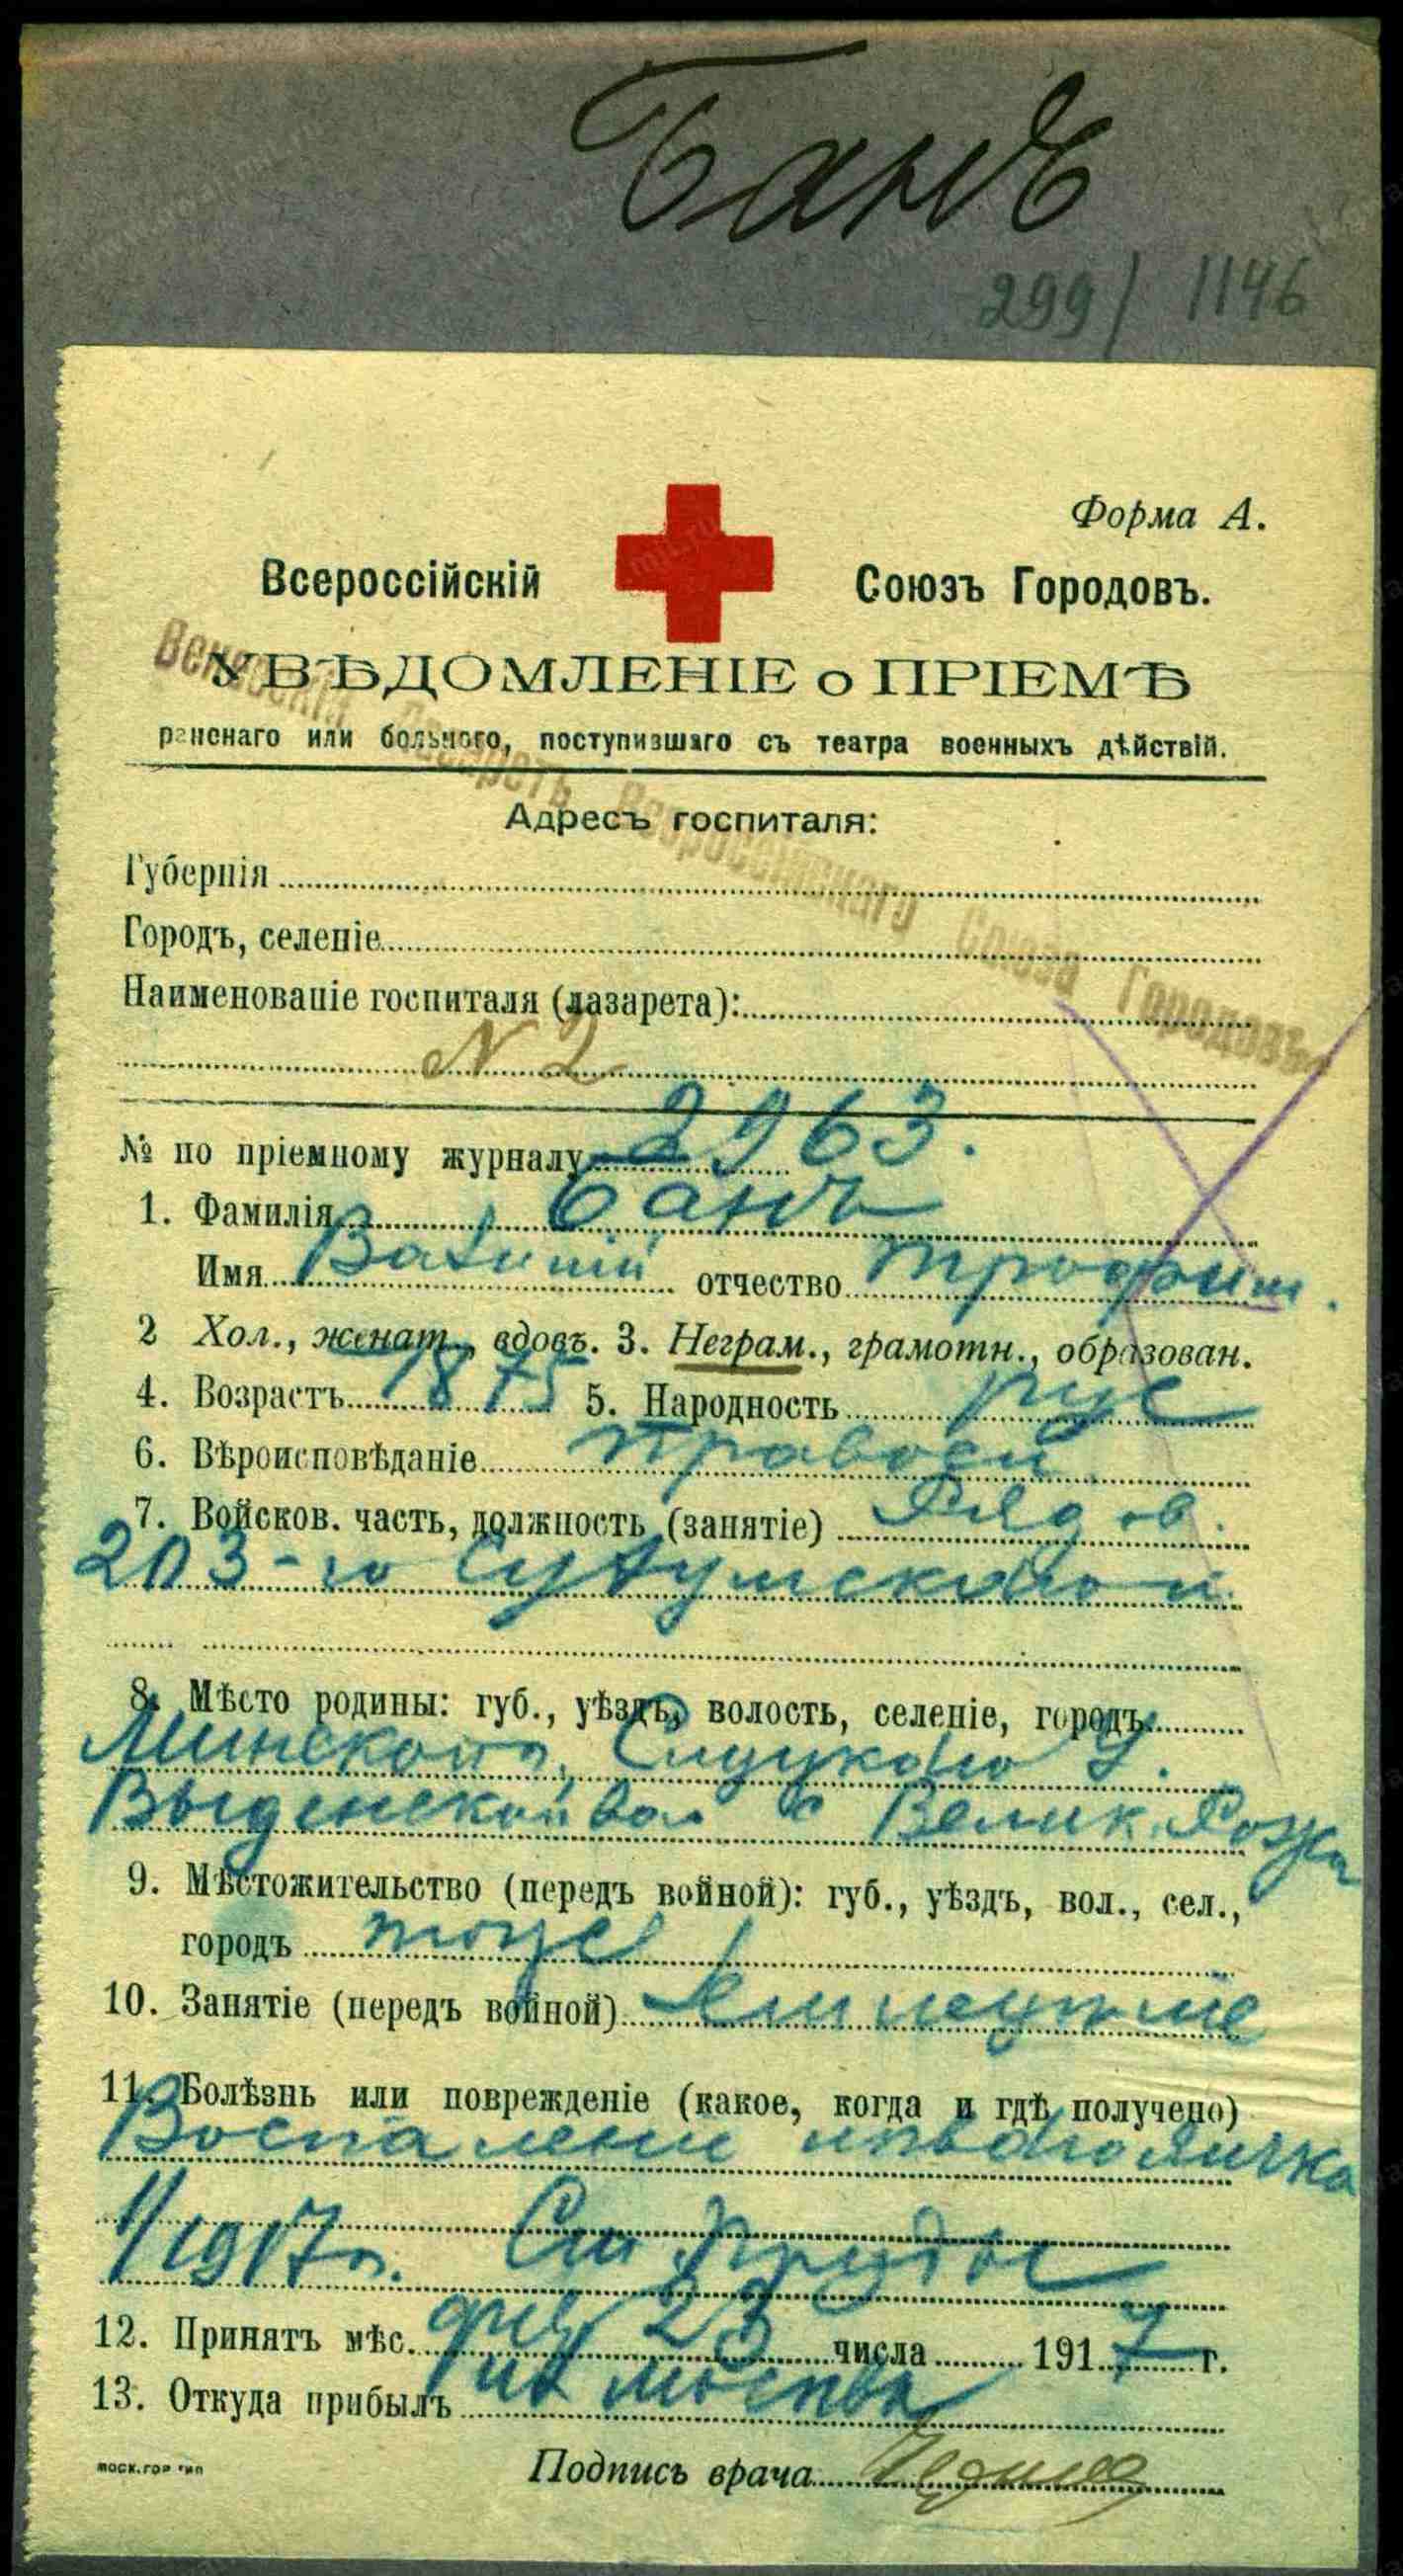 Банъ
299/1146
Форма А.
Всероссійскій Союзъ Городовъ.
УВѢДОМЛЕНІЕ о ПРІЕМѢ
раненаго или больного, поступившаго съ театра военныхъ дѣйствій.
Лазаретъ Всероссійскаго Союза Городовъ
Адресъ госпиталя:
Губернія
Городъ, селеніе
Наименованіе госпиталя (лазарета):
N 2
№ по пріемному журналу 2963.
1. Фамилія Банъ
Имя отчество Трофим.
2 Хол., женат., вдовъ. 3. Неграм., грамотн., образован.
4. Возрастъ 1875 5. Народность рус
6. Вѣроисповѣданіе правосл
7. Войсков. часть, должность (занятіе) Рядов.
203-го Сухумскаго п.
8. Мѣсто родины: губ., уѣздъ, волость, селеніе, городъ
Минской, Слуцкаго у.
Вызенской вол с Велик. Рожа
9. Мѣстожительство (передъ войной): губ., уѣздъ, вол., сел.,
городъ тоже
10. Занятіе (передъ войной)
11. Болѣзнь или поврежденіе (какое, когда и гдѣ получено)
Воспалени лѣваго яичка
1/1917г. Ст Пруды
12. Принятъ мѣс. фев 23 числа 1917 г.
13. Откуда прибылъ из Москвы
МОСК.ГОР ТИП
Подпись врача